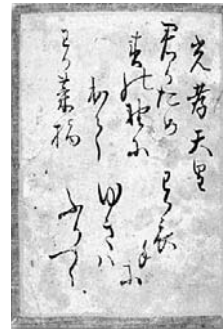 光孝天皇
君かため
春の野に
出て
わか菜摘
わか衣
手に
ゆきは
ふりつゝ